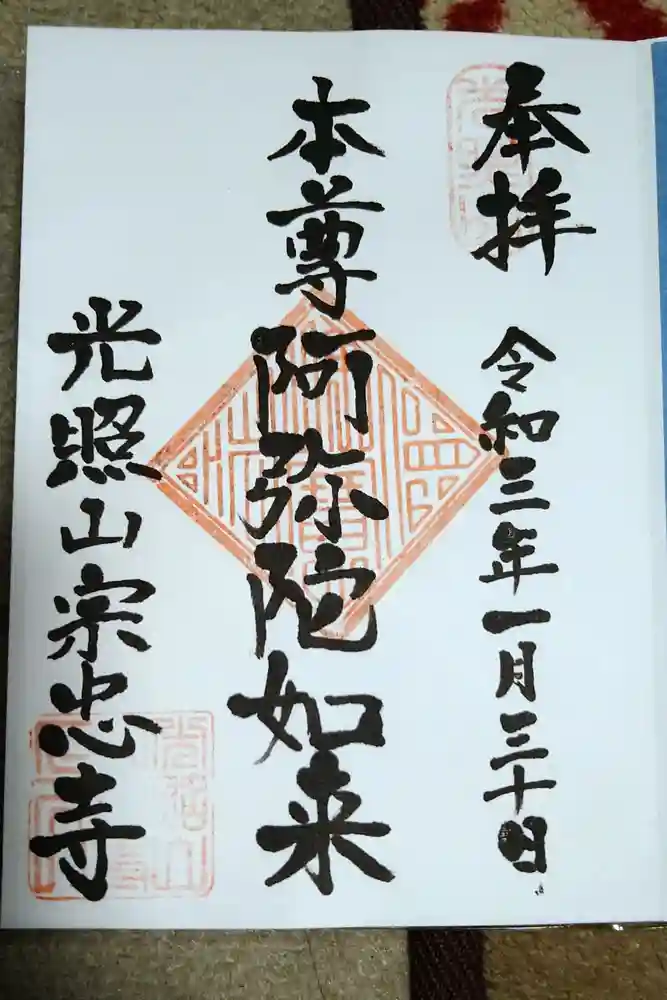 奉拝
令和三年一月三十日
本尊阿弥陀如来
光照山宗忠寺